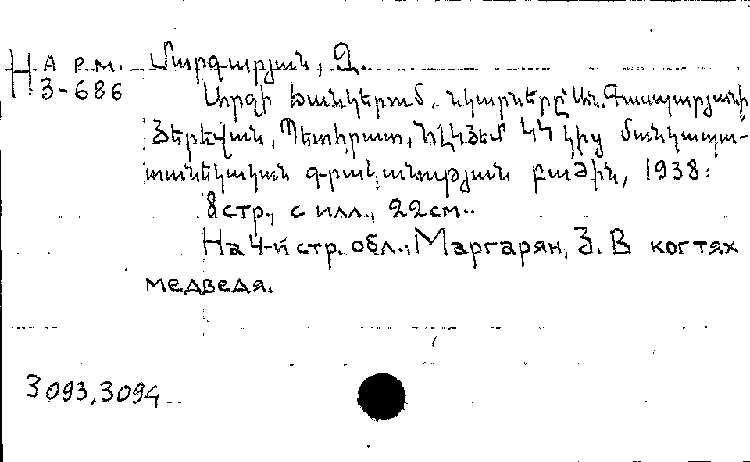 Н Арм.
3-686
Մարգարյան, Զ.
Արջի ճանկերում. նկարները Ան. Գասպարյանի
Յերևան, Պետհրատ, ՀԼԿՅԵՄ ԿԿ կից մանկապա-
տանեկական գրականության բաժին, 1938:
8 стр., с илл., 22см.
На 4-й стр. обл.: Маргарян, З. В когтях
медведя.
3093,3094